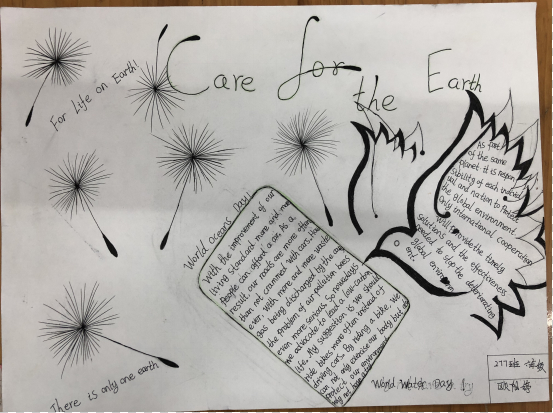 Care for
the Earth
For Life on Earth!
World Oceans Day!
With the improvement of our
living standard more and more
people can afford a car. As a
result, our roads are more often
than not crammed with cars. How
ever, with more and more waste
gas being discharged by the cars
the problem of air pollution becomes
even more serious. So nowadays
we advocate to lead a low-carbon
life. My suggestion is we should
ride bikes more often instead of
driving cars. By riding a bike, we
can not only exercise our body but also
protect our environment
As part
of the same
planet it is respon
sibility of each individ
ual and nation to protect
the global environment
Only international cooperation
will provide the timely
solutions and the effectiveness
needed to stop the deterioration
global environm
ent.
There is only one earth
World Water Day!
277班